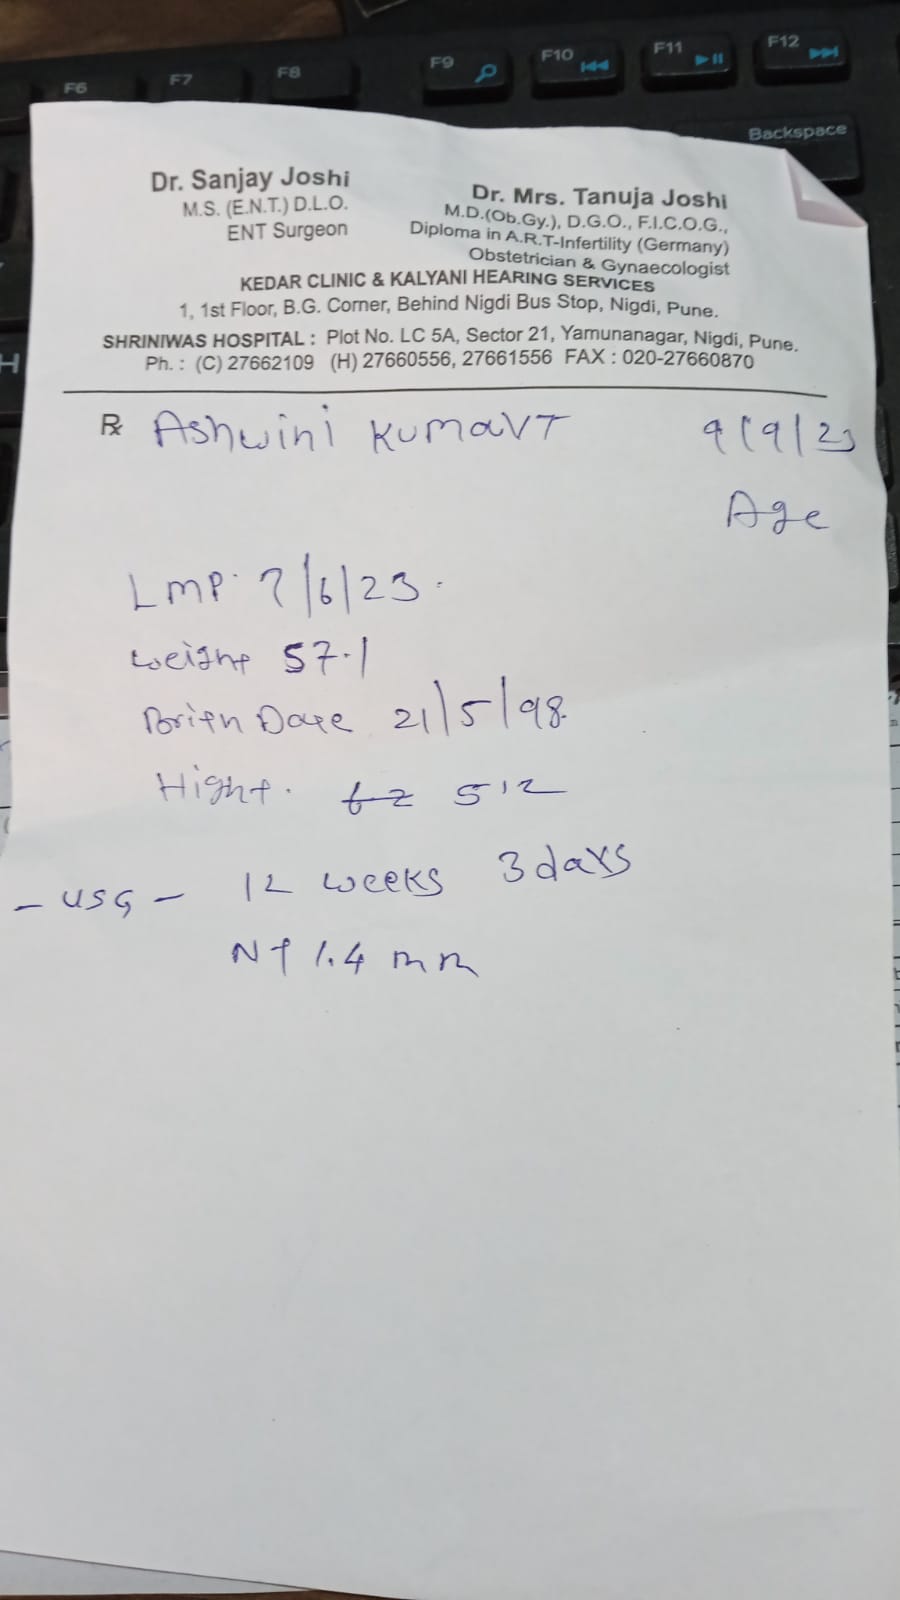 F6 F7 F8 F9 F10 F11 F12
Backspace
H
Dr. Sanjay Joshi
M.S. (E.N.T.) D.L.O.
ENT Surgeon
Dr. Mrs. Tanuja Joshi
M.D.(Ob.Gy.), D.G.O., F.I.C.O.G.,
Diploma in A.R.T-Infertility (Germany)
Obstetrician & Gynaecologist
KEDAR CLINIC & KALYANI HEARING SERVICES
1, 1st Floor, B.G. Corner, Behind Nigdi Bus Stop, Nigdi, Pune.
SHRINIWAS HOSPITAL : Plot No. LC 5A, Sector 21, Yamunanagar, Nigdi, Pune.
Ph. : (C) 27662109 (H) 27660556, 27661556 FAX : 020-27660870
℞ Ashwini Kumavt 9/9/23
Age
LMP. 7/6/23.
weight 57.1
Birth Date 21/5/98.
Hight. 5'2
- USG - 12 weeks 3 days
NT 1.4 mm